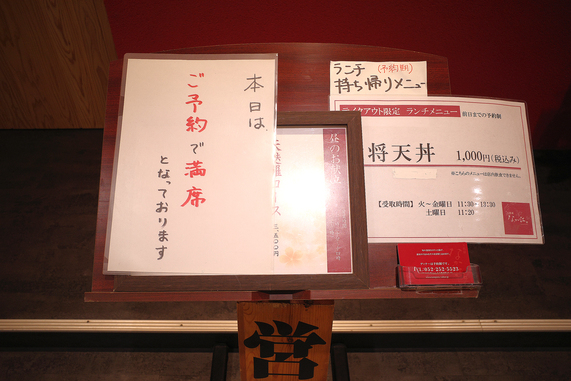 本日は、
ご予約で満席
となっております
ランチ (予約制)
持ち帰りメニュー
テイクアウト限定 ランチメニュー 前日までの予約制
将天丼 1,000円(税込み)
※こちらのメニューは店内飲食できません。
【受取時間】 火~金曜日 11:30-13:30
土曜日 11:20
昼のお品書
TEL.052-252-5523
営